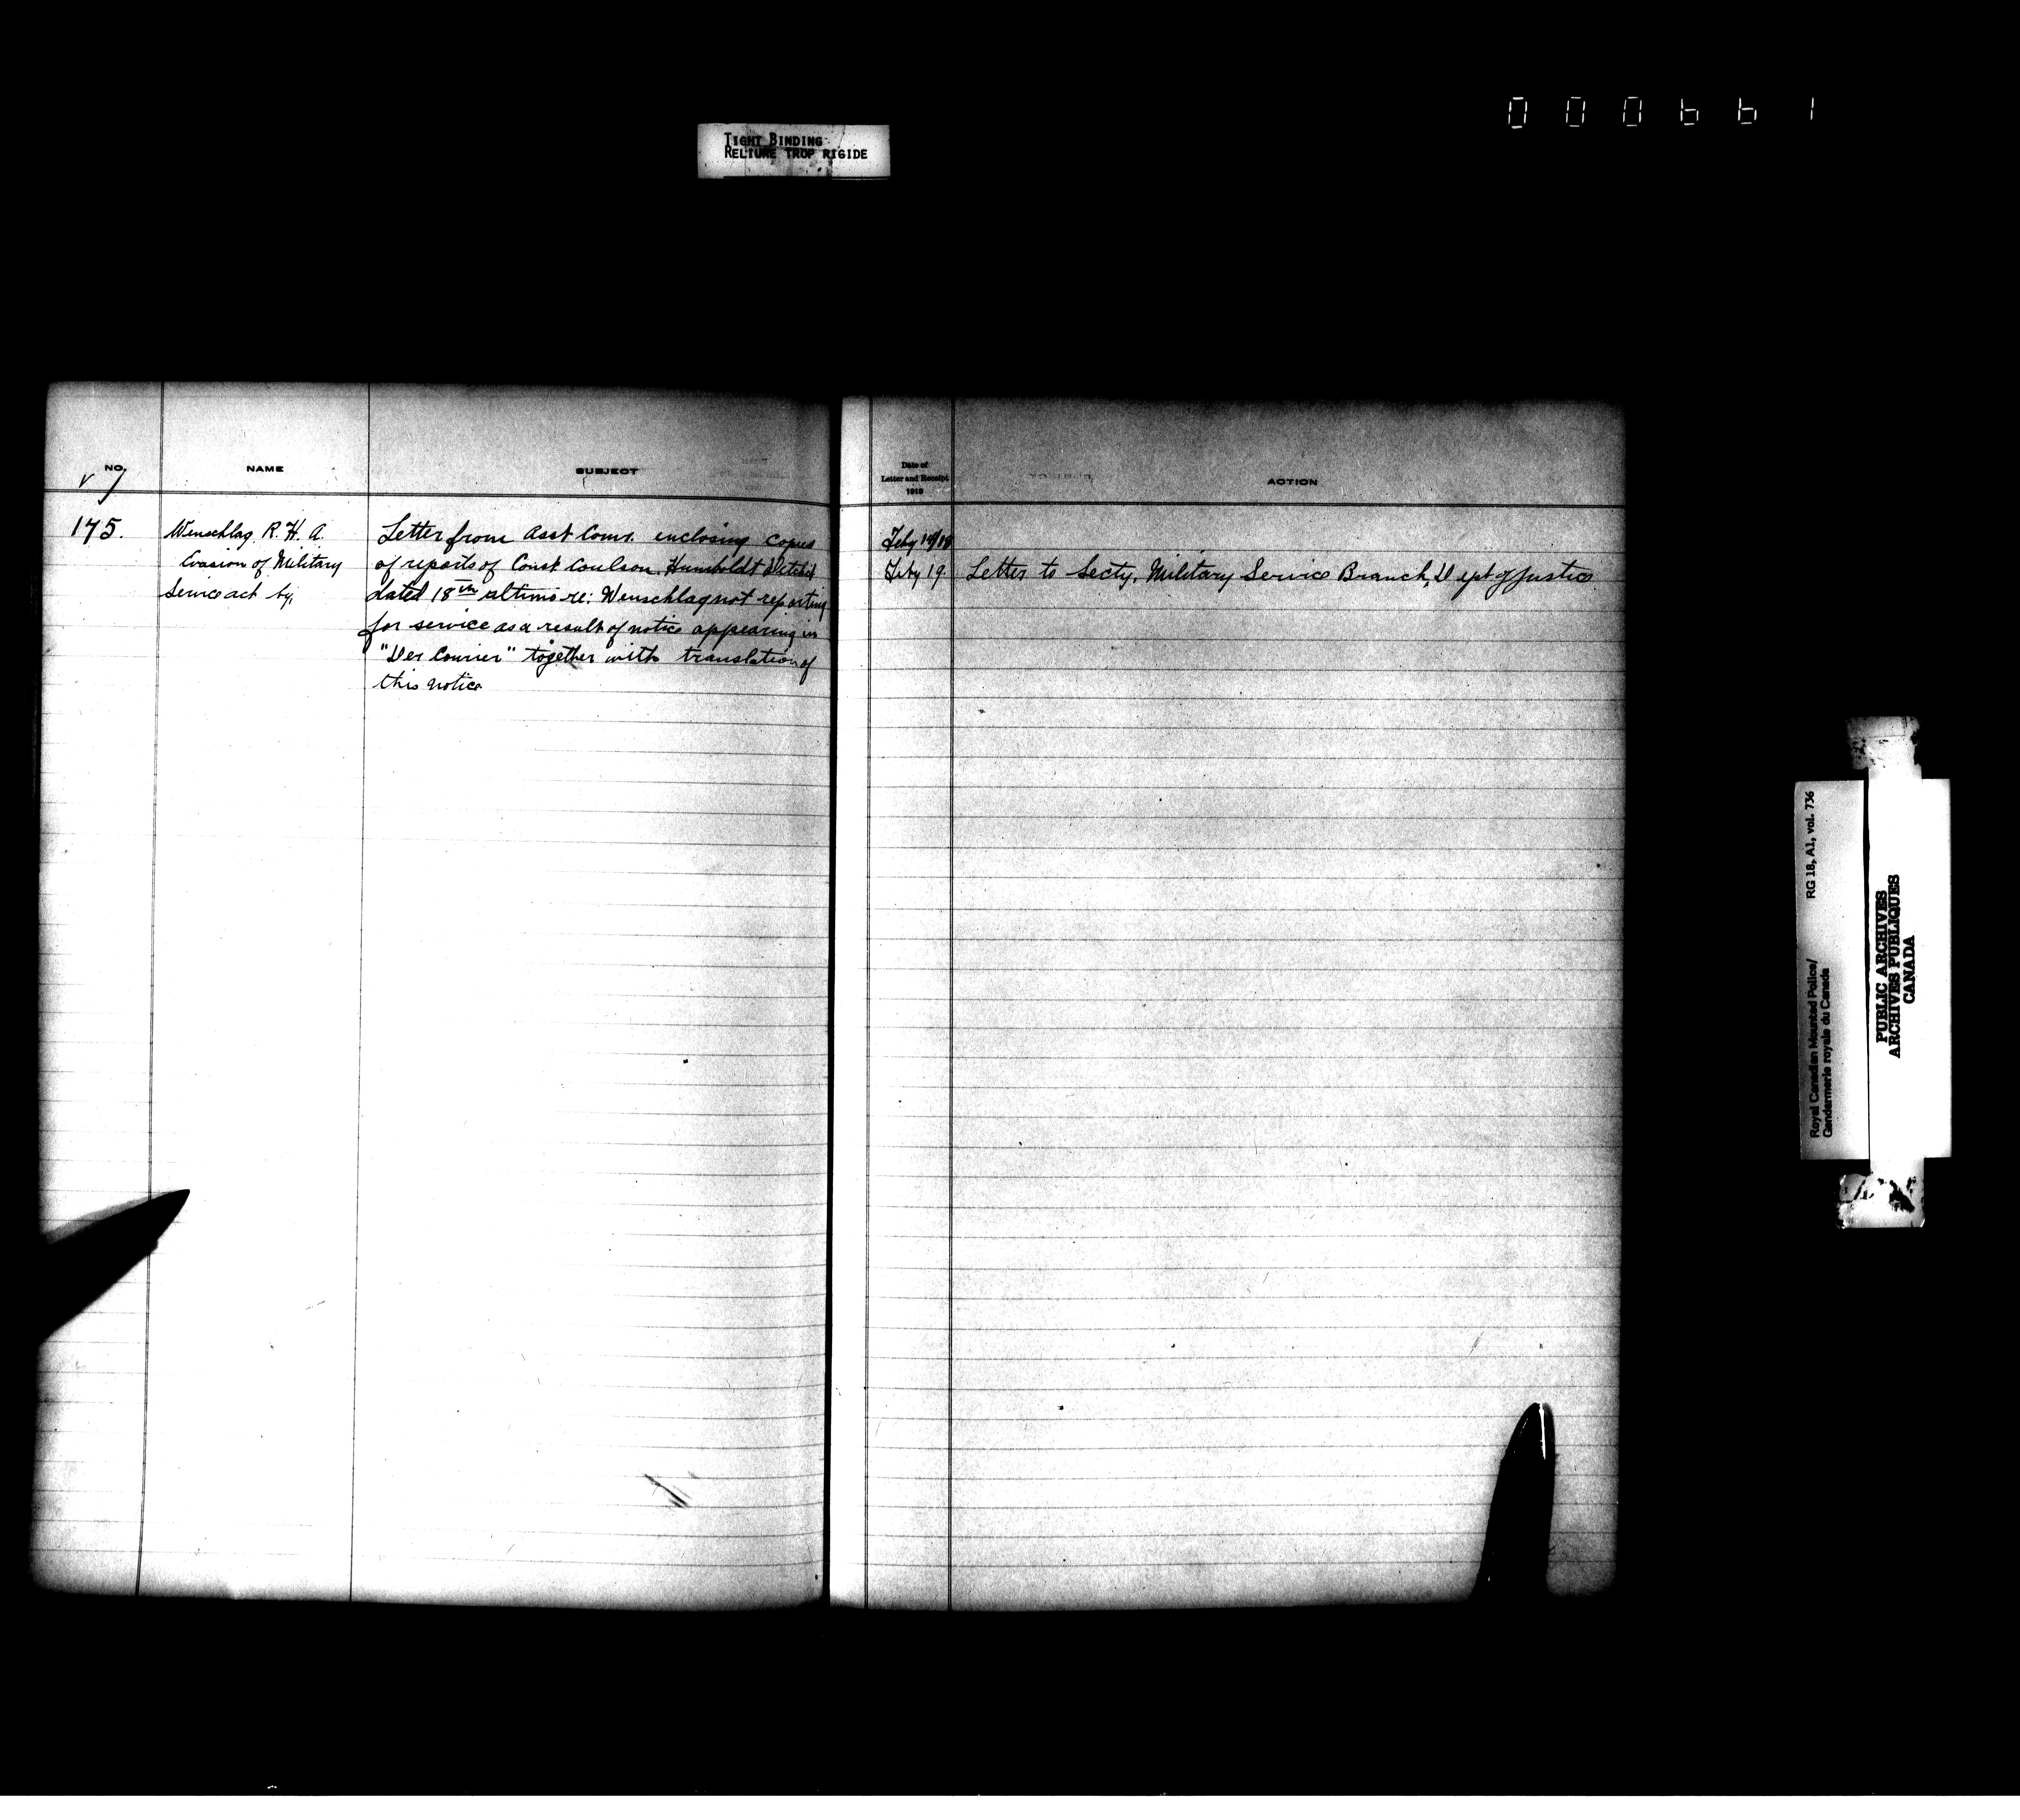 000661
TIGHT BINDING
RELIURE TROP RIGIDE
NO.
NAME
SUBJECT
175.
Wenschlag R. H. A.
Evasion of Military
Service act by,
Letter from Asst Comr. enclosing copies
of reports of Const Coulson, Humboldt Detcht
dated 18th ultimo re: Wenschlag not reporting
for service as a result of notice appearing in
"Der Courier" together with translation of
this notice
Date of
Letter and Receipt
1918
ACTION
Feby
Feby 19. Letter to Secty, Military Service Branch, Dept of Justice
Royal Canadian Mounted Police/ RG 18, A1, vol. 736
Gendarmerie royale du Canada
PUBLIC ARCHIVES
ARCHIVES PUBLIQUES
CANADA